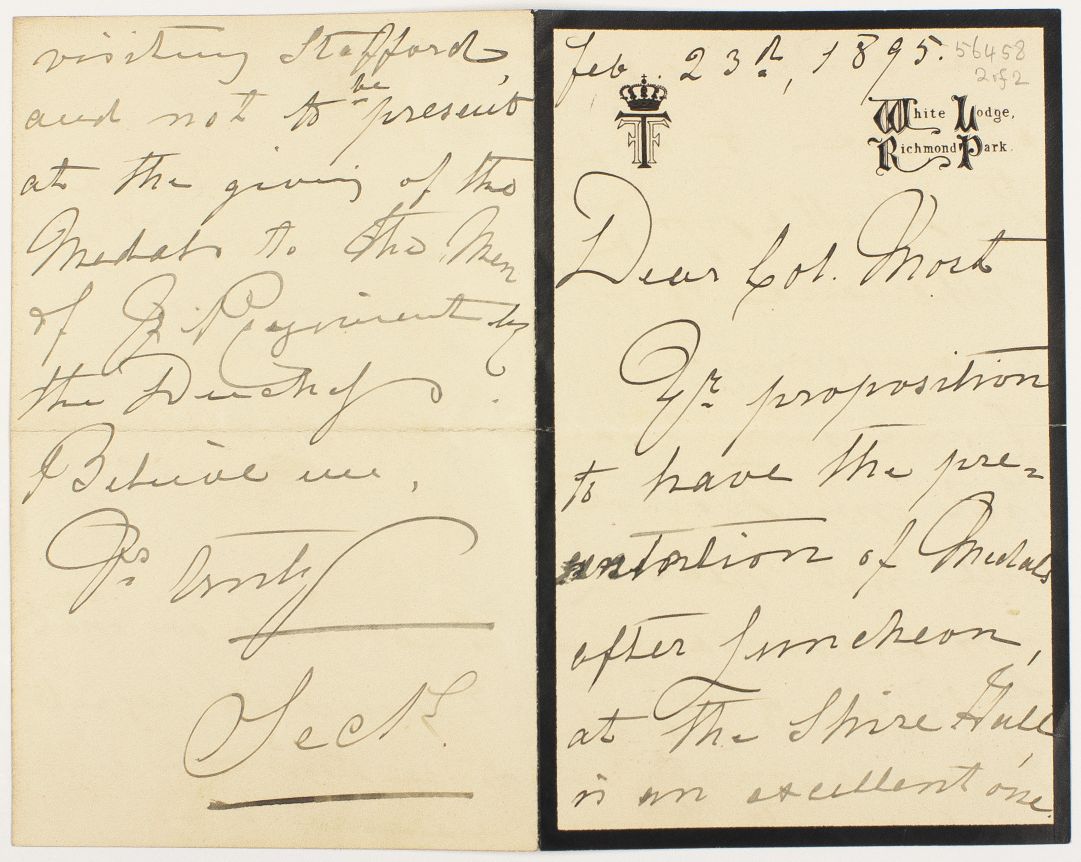 Feb. 23d, 1895.
56458
2 of 2
White Lodge,
Richmond Park.
Dear Col.
Yr proposition
to have the pre=
sentation of Medals
after Luncheon,
at the Shire Hall,
is an excellent one.
visiting Stafford,
and not to be present
at the giving of the
Medals to the Men
of Yr Regiment by
the Duchess.
Believe me,
Yrs truly
Teck.